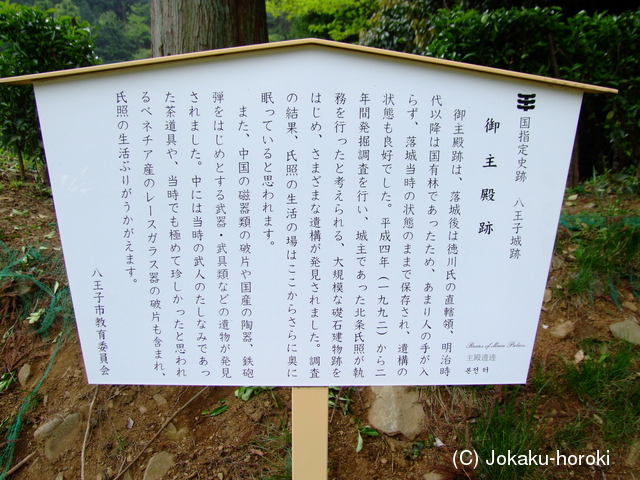 国指定史跡 八王子城跡
御主殿跡
御主殿跡は、落城後は徳川氏の直轄領、明治時
代以降は国有林であったため、あまり人の手が入
らず、落城当時の状態のままで保存され、遺構の
状態も良好でした。平成四年（一九九二）から二
年間発掘調査を行い、城主であった北条氏照が執
務を行ったと考えられる、大規模な礎石建物跡を
はじめ、さまざまな遺構が発見されました。調査
の結果、氏照の生活の場はここからさらに奥に
眠っていると思われます。
また、中国の磁器類の破片や国産の陶器、鉄砲
弾をはじめとする武器・武具類などの遺物が発見
されました。中には当時の武人のたしなみであっ
た茶道具や、当時でも極めて珍しかったと思われ
るベネチア産のレースガラス器の破片も含まれ、
氏照の生活ぶりがうかがえます。
八王子市教育委員会
Ruins of Main Palace
主殿遗迹
본전 터
(C)Jokaku-horoki